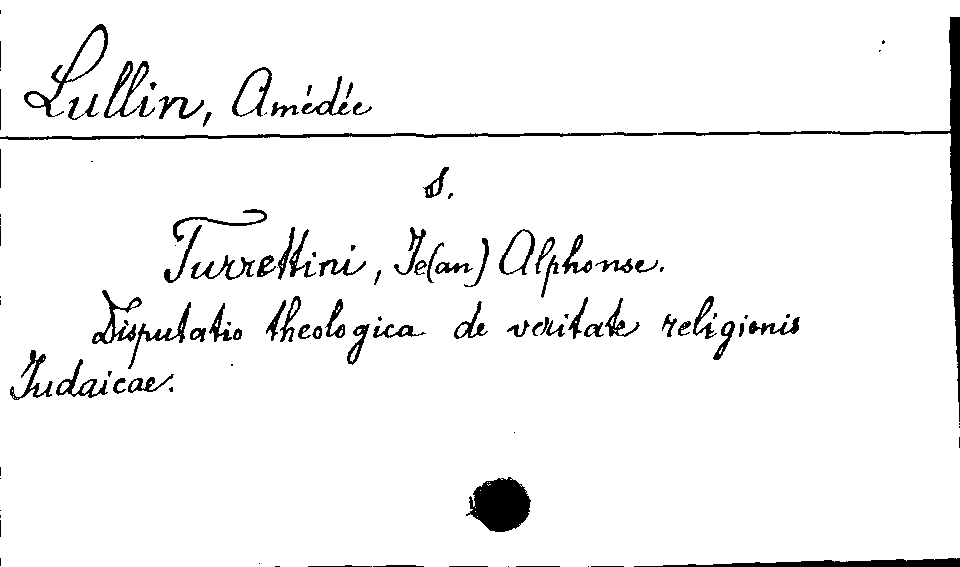 Lullin, Amédée
s.
Turrettini, Je(an) Alphonse.
Disputatio theologica de veritate religionis
Judaicae.